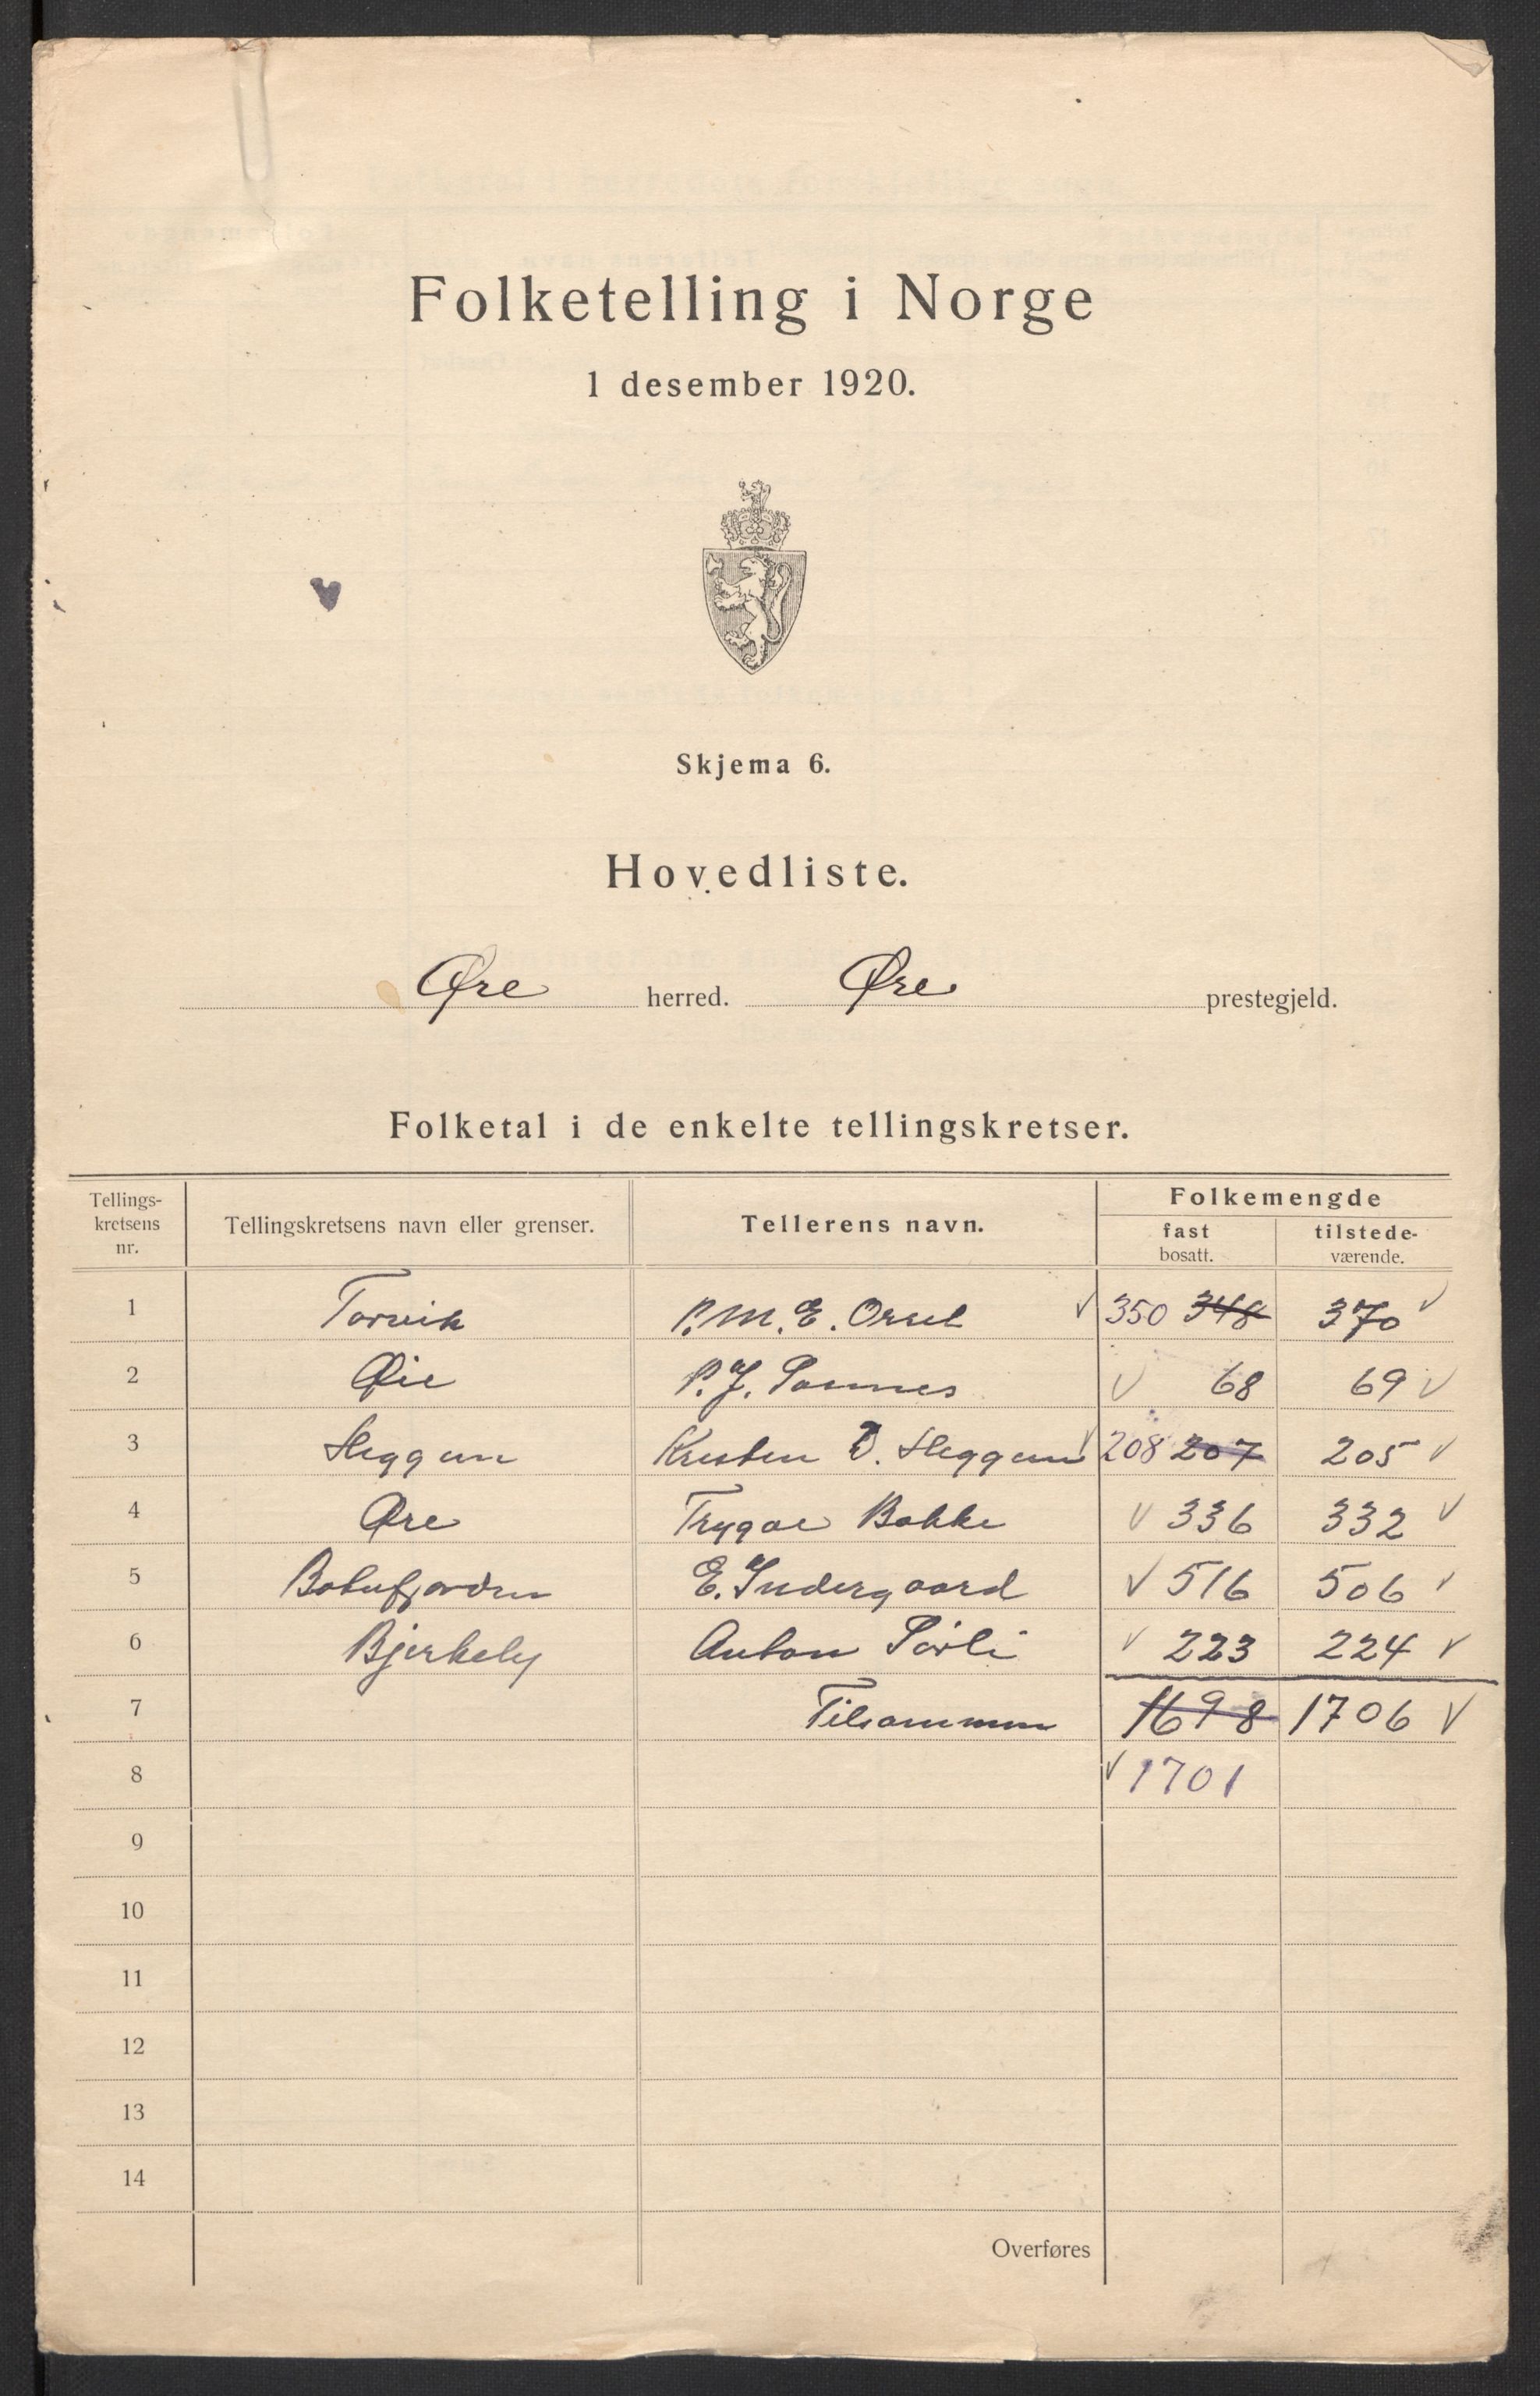 Folketelling i Norge
1 desember 1920.
Skjema 6.
Hovedliste.
Øre herred. Øre prestegjeld.
Folketal i de enkelte tellingskretser.
Tellings-kretsens nr. Tellingskretsens navn eller grenser. Tellerens navn. Folkemengde
fast bosatt. tilstede-værende.
1 Torvik P. M. E. Orset √ 350 348 370 √
2 Øie P. J. √ 68 69 √
3 Heggem Kristen O. Heggem √ 208 207 205 √
4 Øre Trygve Bakke √ 336 332 √
5 Batnfjorden E. Indergaard √ 516 506 √
6 Bjerkely Anton √ 223 224 √
7 Tilsammen 1698 1706 √
8 √ 1701
9
10
11
12
13
14
Overføres